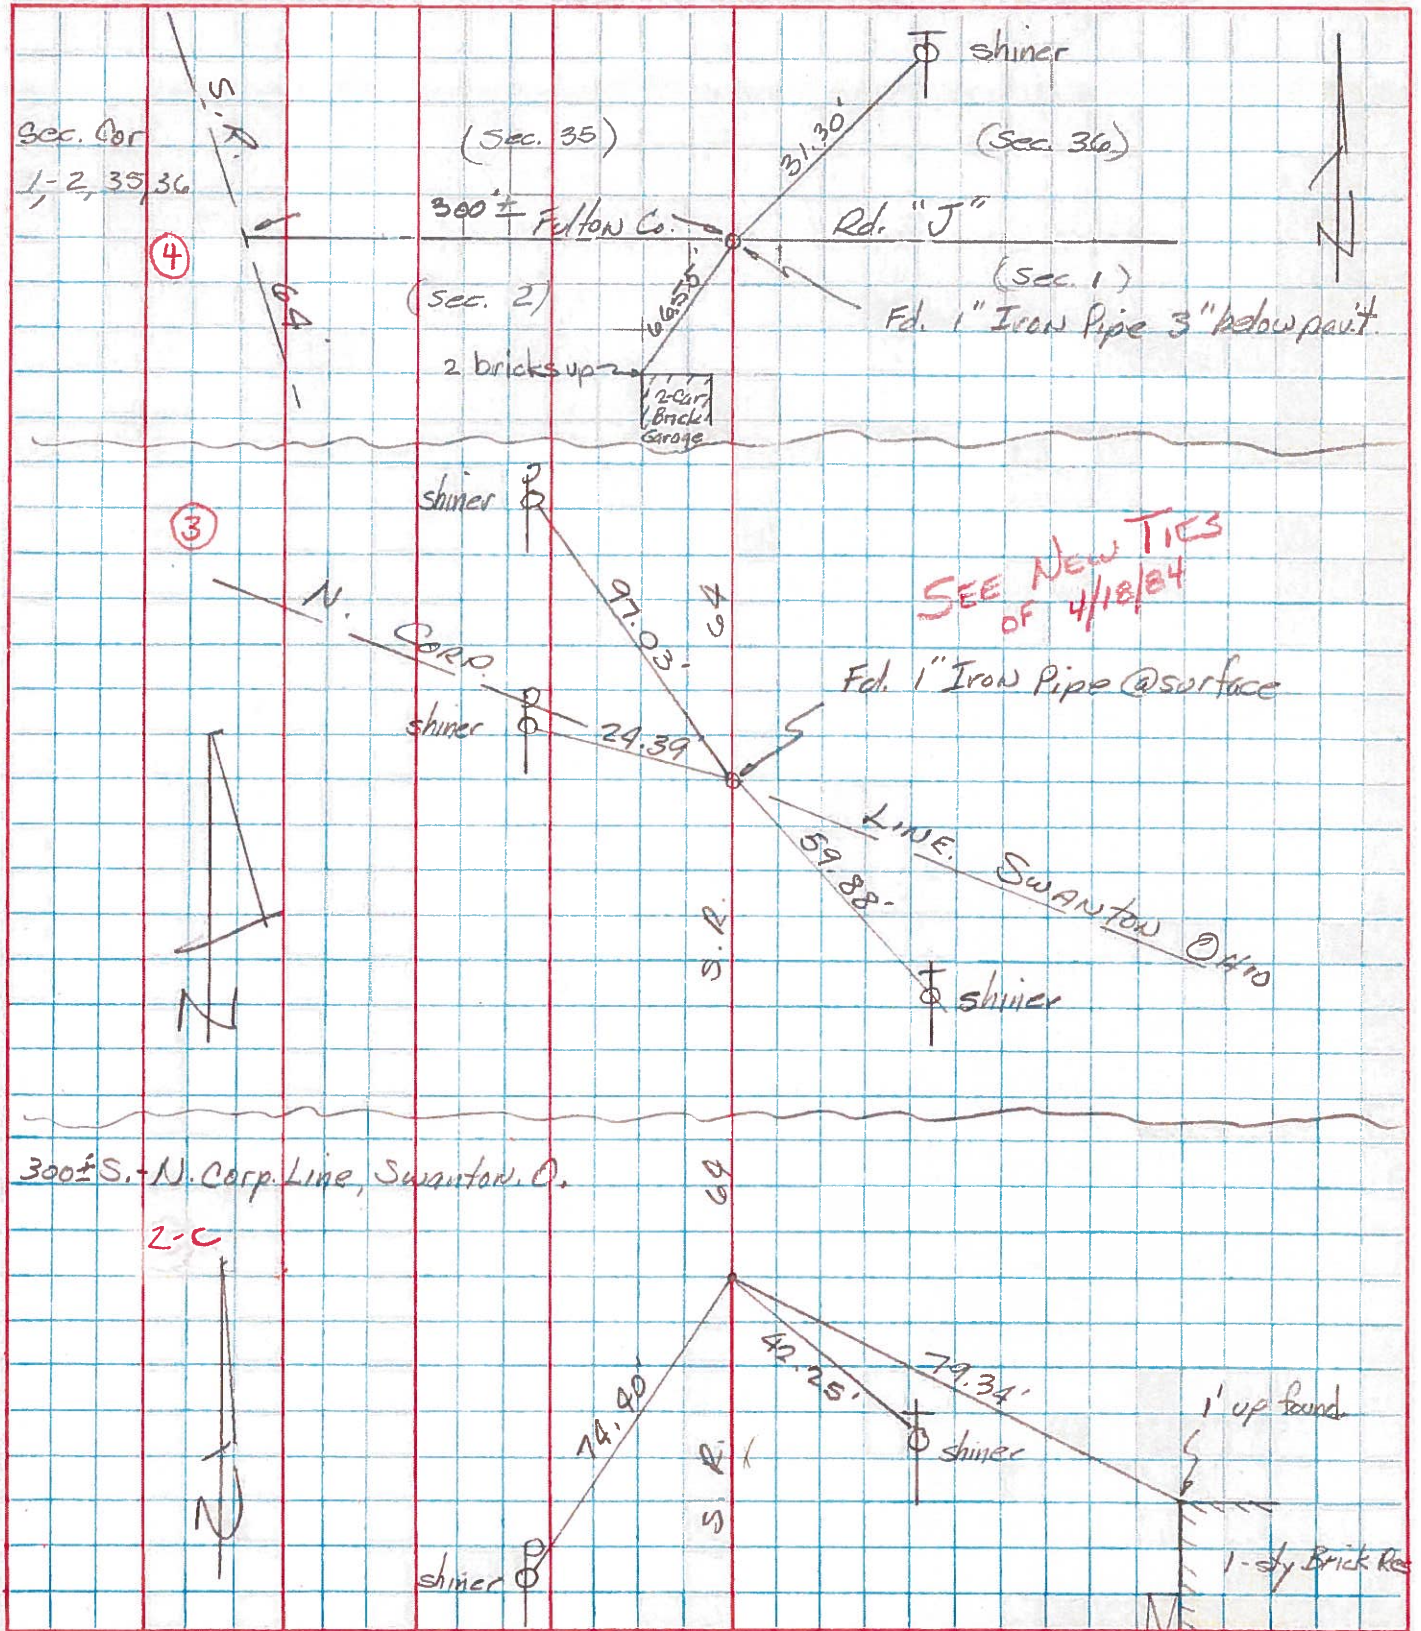 shiner
S. R.
Sec. Cor
1-2, 35, 36
(Sec. 35)
(Sec. 36)
31.30'
300'± Fulton Co. Rd. "J"
4
64
(Sec. 2)
66.55'
(Sec. 1)
Fd. 1" Iron Pipe 3" below pav't.
2 bricks up
2-Car
Brick
Garage
N
shiner
3
SEE NEW TIES
OF 4/18/84
N. CORP.
97.03'
64
Fd. 1" Iron Pipe @ surface
shiner
24.39'
LINE. SWANTON OHIO
59.88'
S. R.
N
shiner
300'± S. - N. Corp. Line, Swanton. O.
64
2-C
42.25'
79.34'
74.40'
1' up found.
S. R.
shiner
N
shiner
1-sty Brick Res